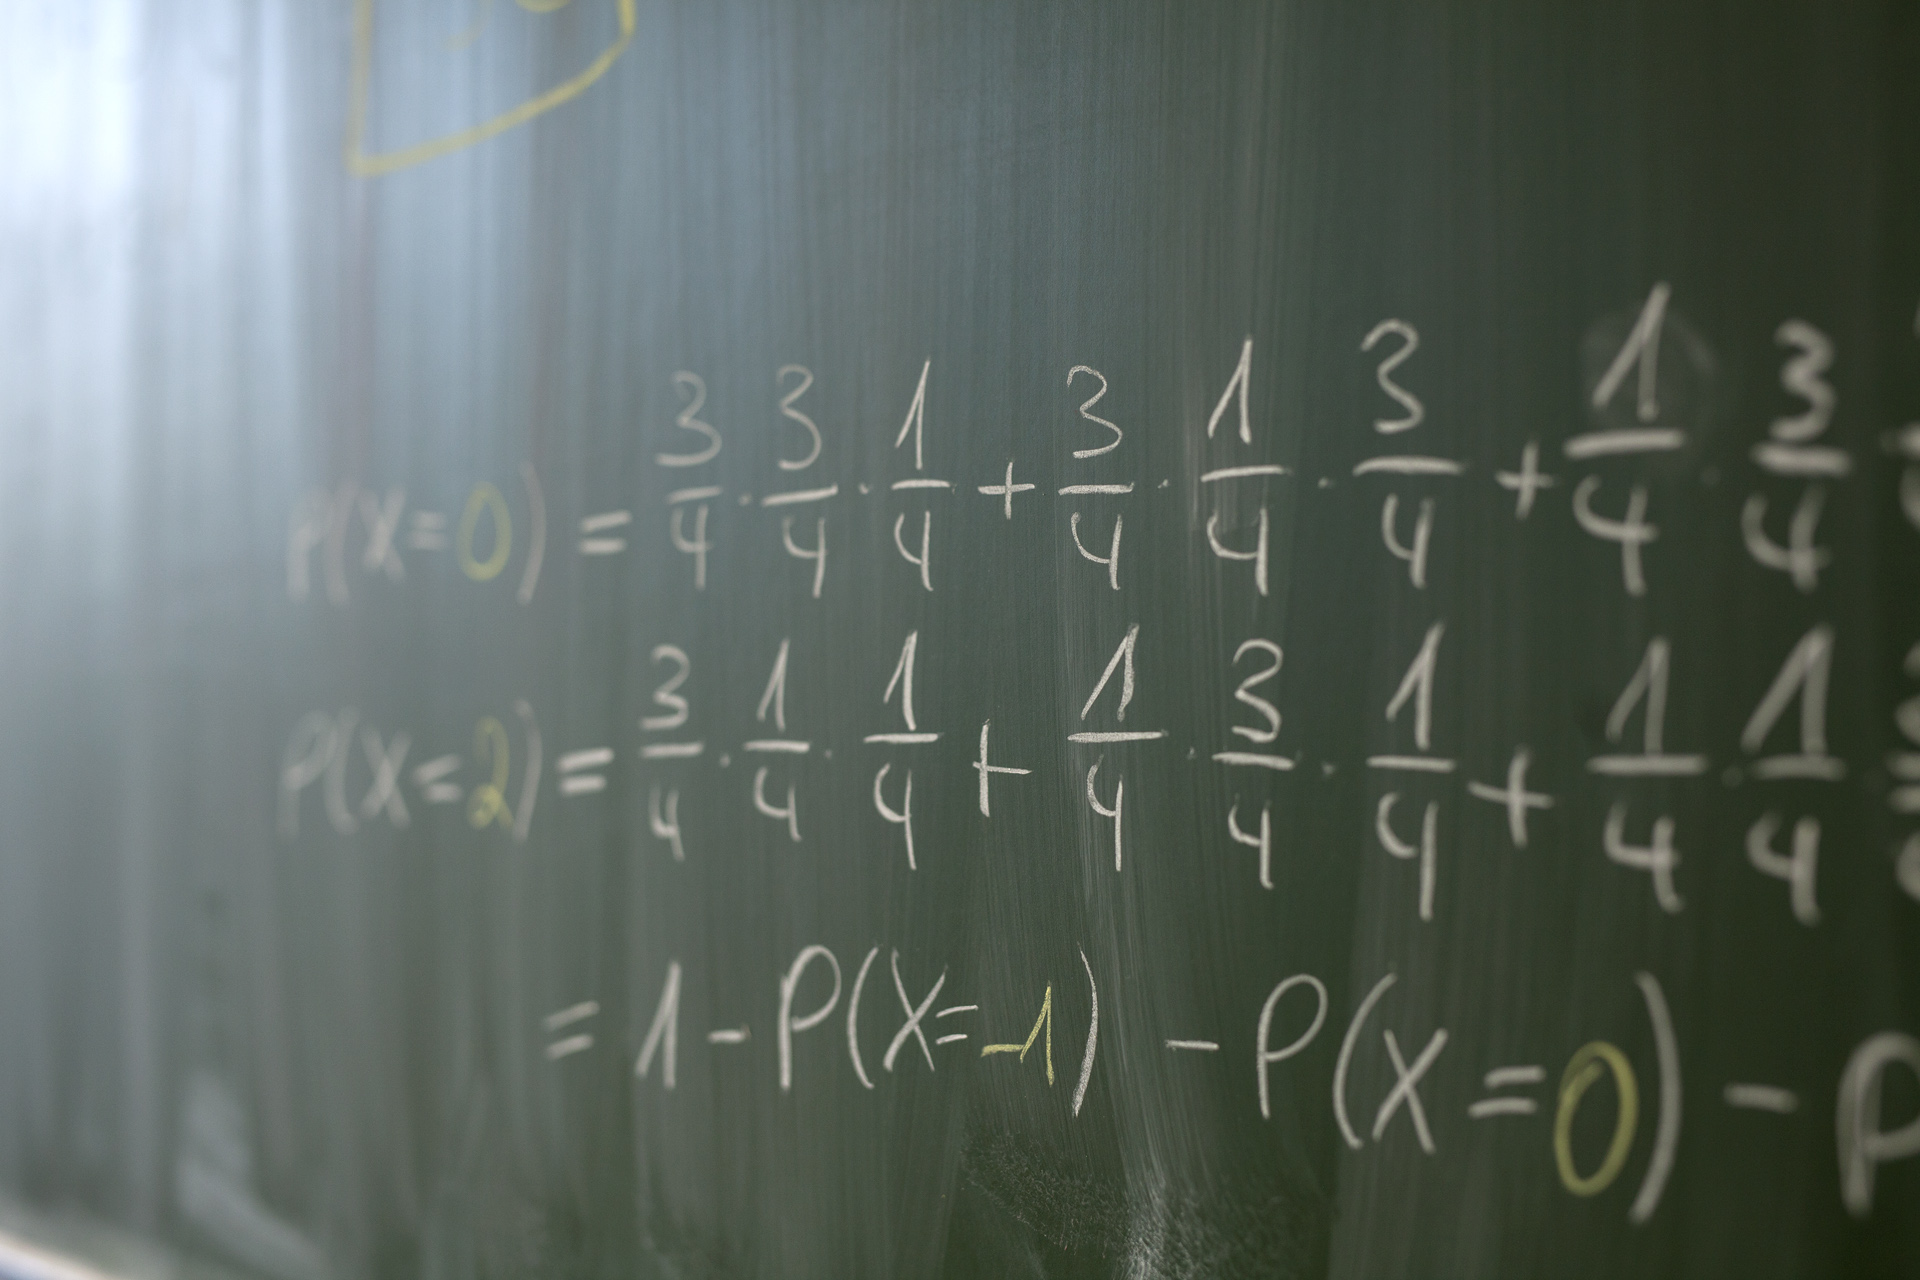 P(X=0) = 3/4 · 3/4 · 1/4 + 3/4 · 1/4 · 3/4 + 1/4 · 3/4
P(X=2) = 3/4 · 1/4 · 1/4 + 1/4 · 3/4 · 1/4 + 1/4 · 1/4
= 1 - P(X=-1) - P(X=0) - P